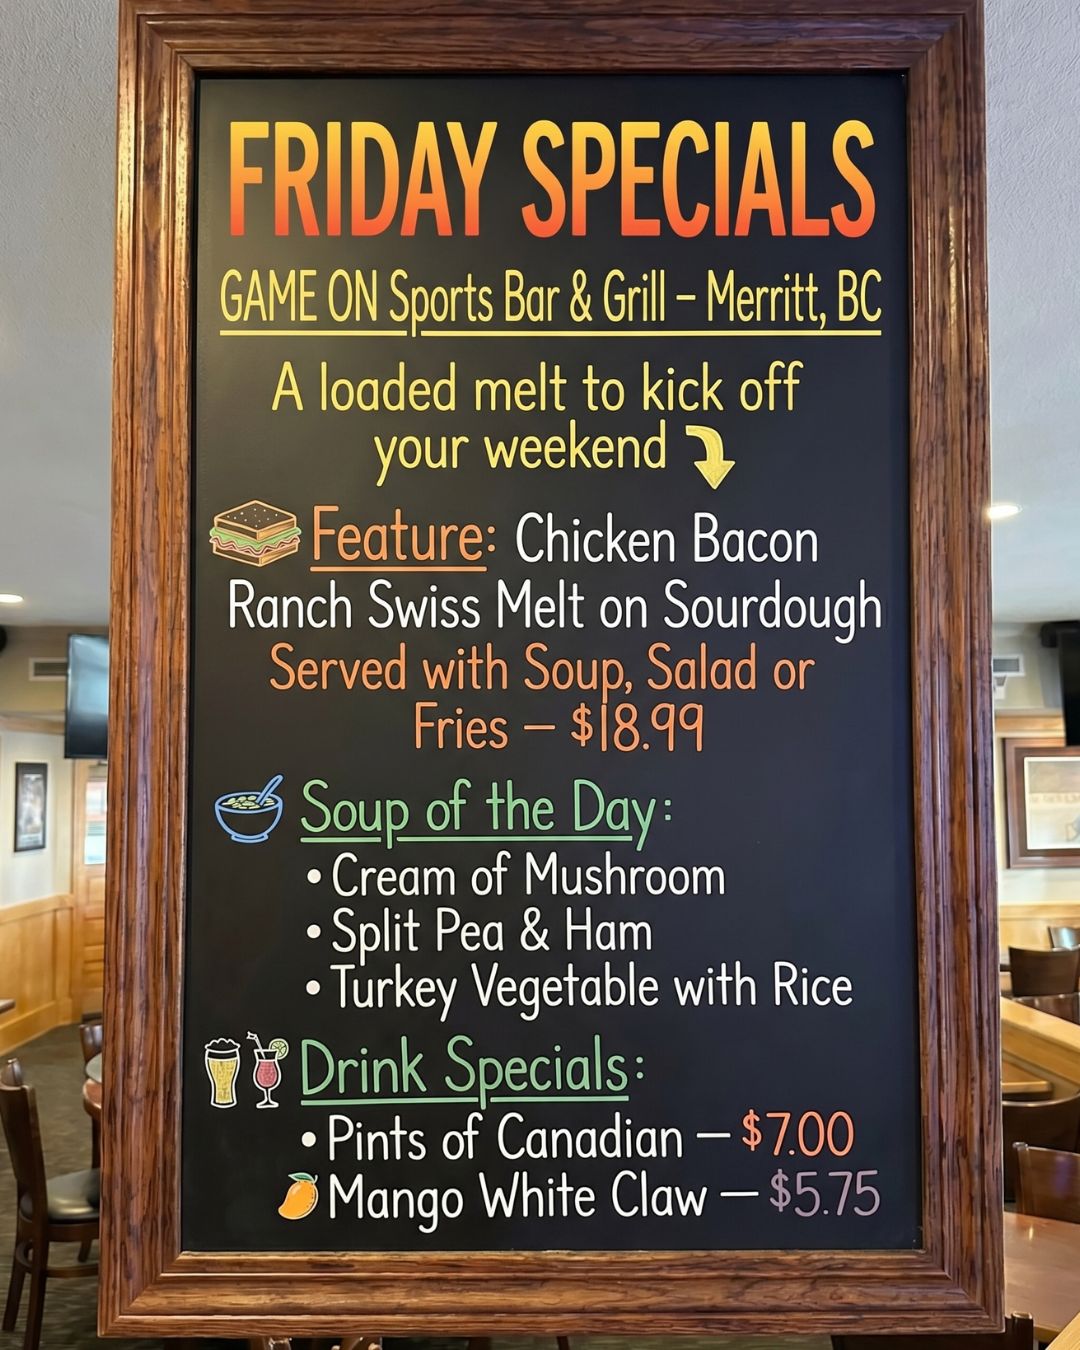 FRIDAY SPECIALS
GAME ON Sports Bar & Grill – Merritt, BC
A loaded melt to kick off
your weekend
Feature: Chicken Bacon
Ranch Swiss Melt on Sourdough
Served with Soup, Salad or
Fries – $18.99
Soup of the Day:
• Cream of Mushroom
• Split Pea & Ham
• Turkey Vegetable with Rice
Drink Specials:
• Pints of Canadian – $7.00
Mango White Claw – $5.75